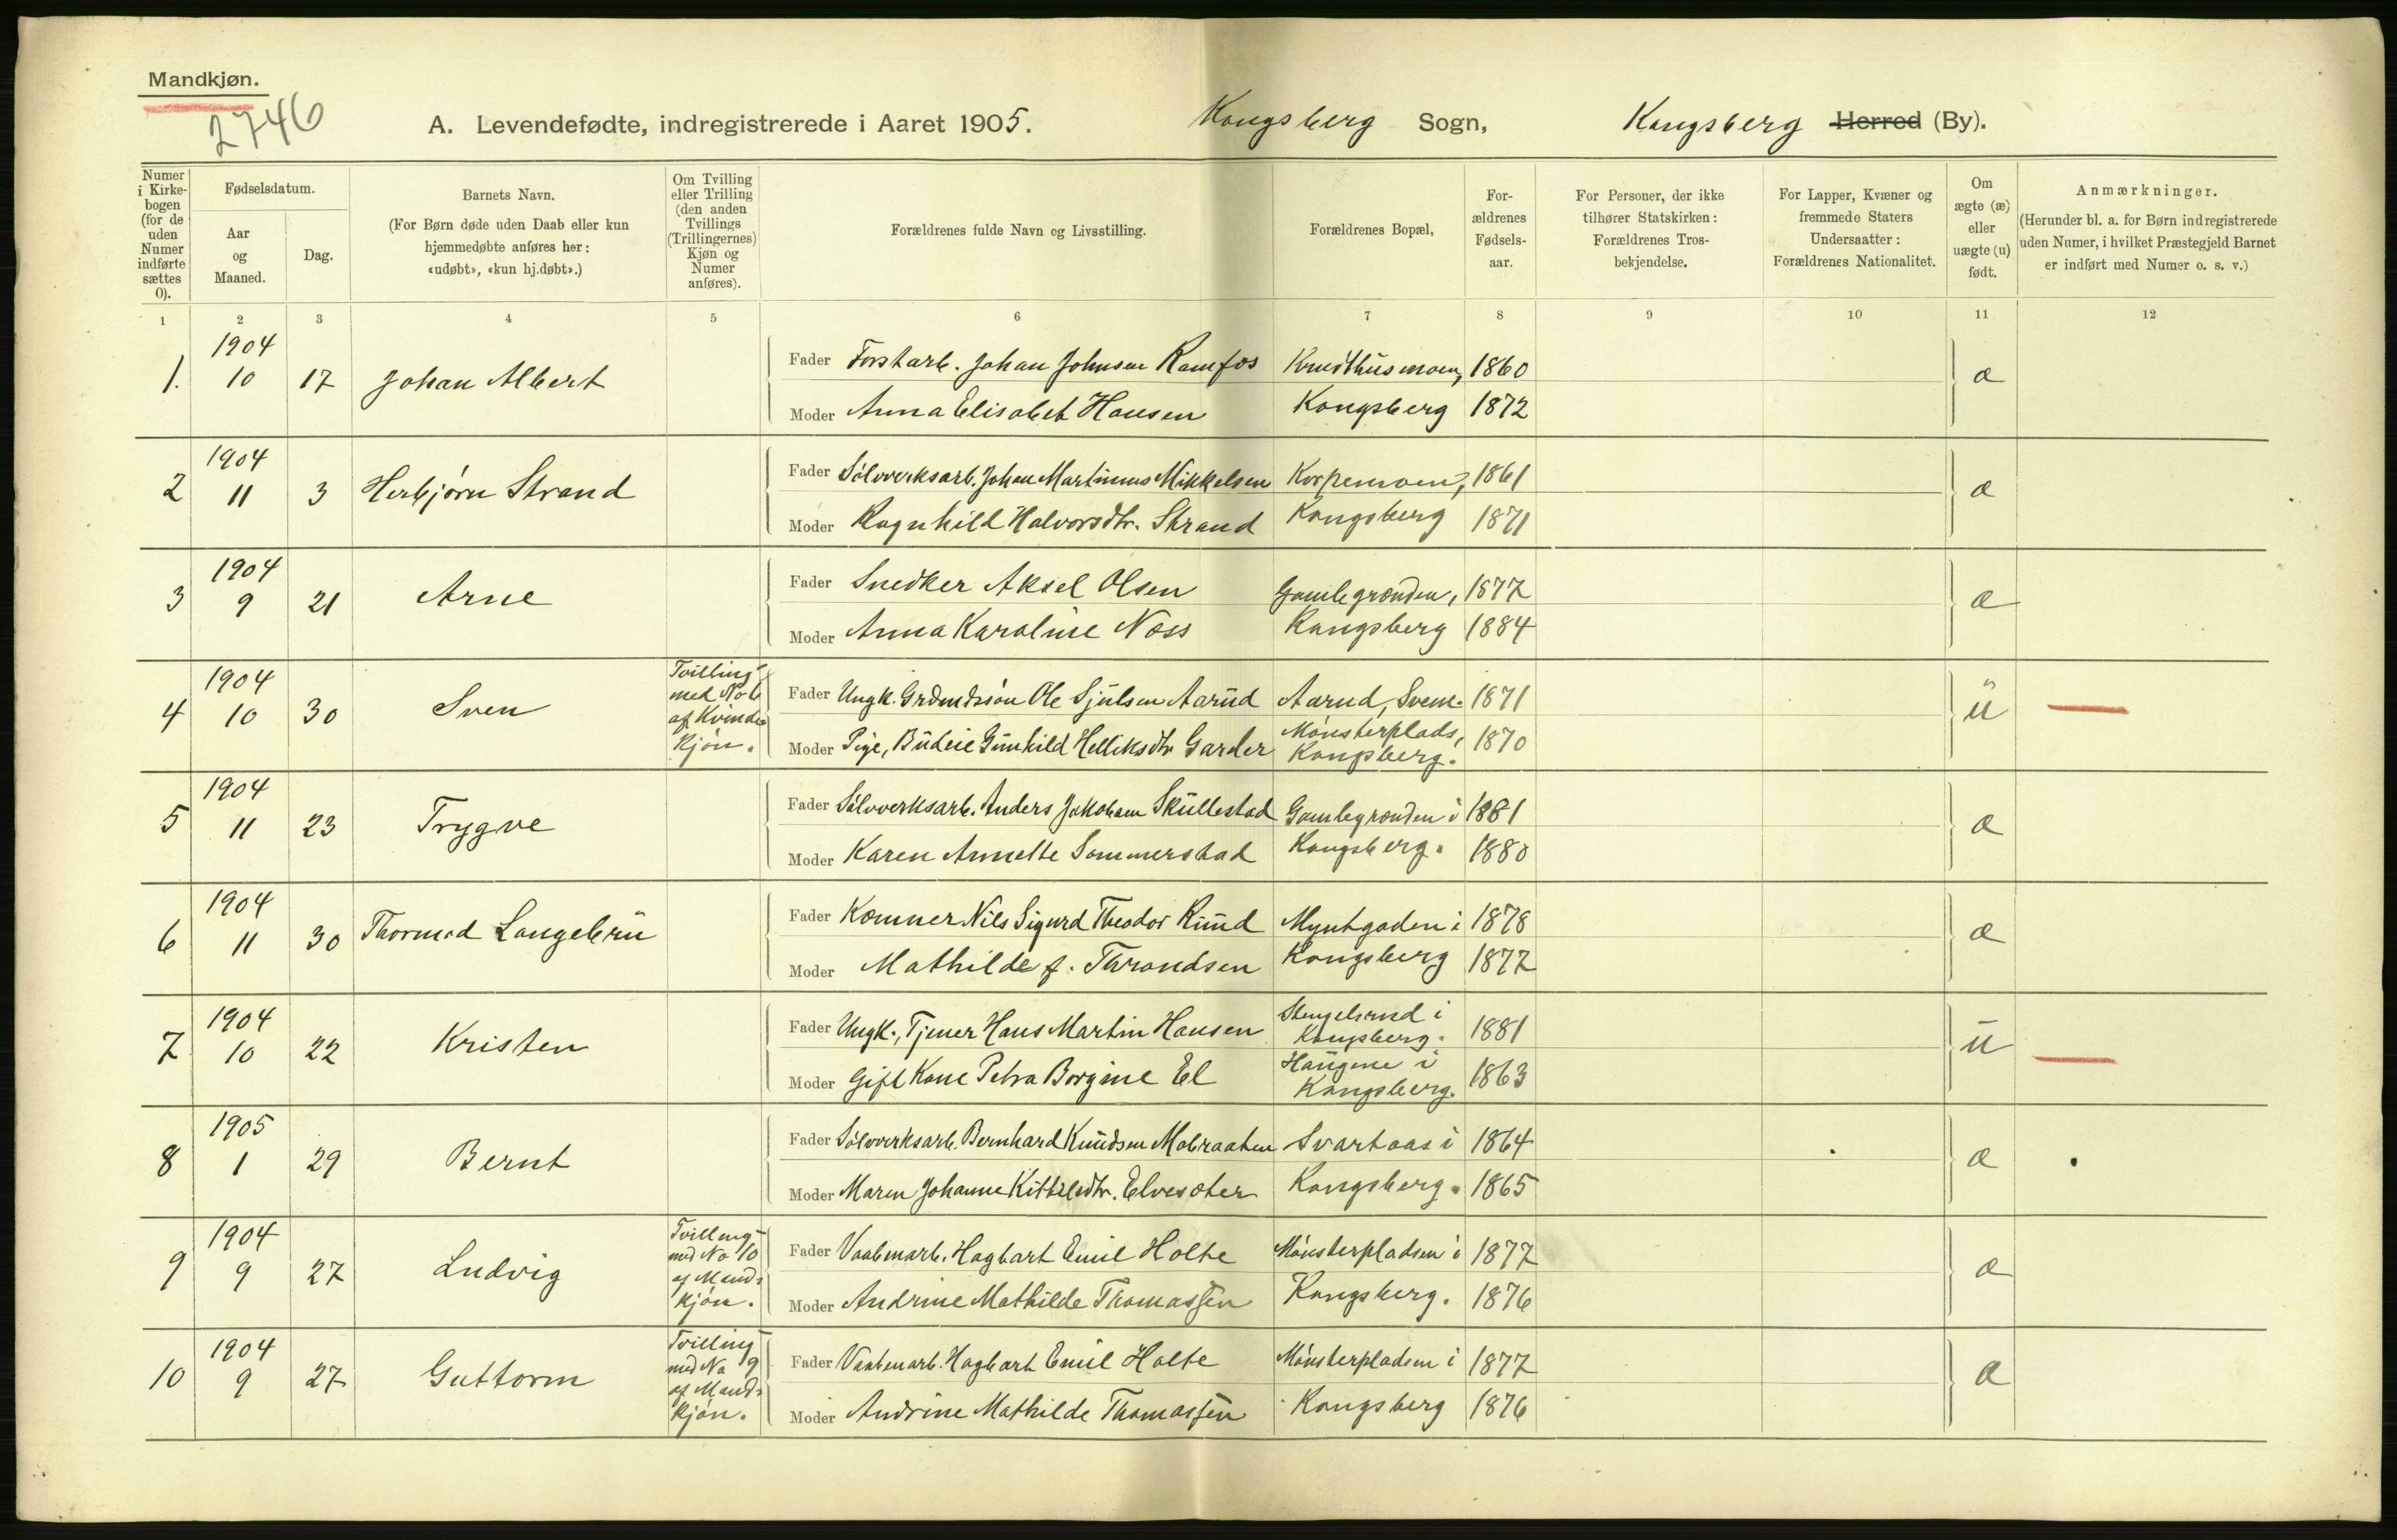 Mandkjøn.
2746
A. Levendefødte, indregistrerede i Aaret 1905.
Kongsberg Sogn,
Kongsberg Herred (By).
Numer i Kirke-bogen (for de uden Numer indførte sættes 0).
Fødselsdatum.
Aar og Maaned.
Dag.
Barnets Navn.
(For Børn døde uden Daab eller kun hjemmedøbte anføres her: «udøbt», «kun hj.døbt».)
Om Tvilling eller Trilling (den anden Tvillings (Trillingernes) Kjøn og Numer anføres).
Forældrenes fulde Navn og Livsstilling.
Forældrenes Bopæl,
For-ældrenes Fødsels-aar.
For Personer, der ikke tilhører Statskirken: Forældrenes Tros-bekjendelse.
For Lapper, Kvæner og fremmede Staters Undersaatter: Forældrenes Nationalitet.
Om ægte (æ) eller uægte (u) født.
Anmærkninger.
(Herunder bl. a. for Børn indregistrerede uden Numer, i hvilket Præstegjeld Barnet er indført med Numer o. s. v.)
1 2 3 4 5 6 7 8 9 10 11 12
1. 1904 10 17 Johan Albert
Fader Forstarb. Johan Johnsen Ramfos Knudthusmoen, 1860 æ
Moder Anna Elisabet Hansen Kongsberg 1872
2 1904 11 3 Herbjørn Strand
Fader Sølvverksarb. Johan Martinius Mikkelsen Korpemoen, 1861 æ
Moder Ragnhild Halvorsdtr. Strand Kongsberg 1871
3 1904 9 21 Arne
Fader Snedker Aksel Olsen Gamlegrænden, 1877 æ
Moder Anna Karoline Næss Kongsberg 1884
4 1904 10 30 Sven
Tvilling med No 6 af Kvinde-kjøn.
Fader Ungk. Grdmdssøn Ole Sjulsen Aarud Aarud, Svene. 1871 u
Moder Pige, Budeie Gunhild Helliksdtr Garder Mønsterplads, Kongsberg. 1870
5 1904 11 23 Trygve
Fader Sølvverksarb. Anders Jakobsen Skullestad Gamlegrænden i 1881 æ
Moder Karen Annette Sommerstad Kongsberg. 1880
6 1904 11 30 Thormod Langebru
Fader Kæmner Nils Sigurd Theodor Ruud Myntgaden i 1878 æ
Moder Mathilde f. Throndsen Kongsberg 1877
7 1904 10 22 Kristen
Fader Ungk., Tjener Hans Martin Hansen Stengelsrud i Kongsberg. 1881 u
Moder Gift Kone Petra Borgine El Haugene i Kongsberg. 1863
8 1905 1 29 Bernt
Fader Sølvverksarb. Bernhard Knudsen Mobraaten Svartaas i 1864 æ
Moder Maren Johanne Kittilsdtr. Elvesæter Kongsberg. 1865
9 1904 9 27 Ludvig
Tvilling med No 10 af Mand-kjøn.
Fader Vaabenarb. Hagbart Emil Holte Mønsterpladsen i 1877 æ
Moder Andrine Mathilde Thomassen Kongsberg. 1876
10 1904 9 27 Guttorm
Tvilling med No 9 af Mand-kjøn.
Fader Vaabenarb. Hagbart Emil Holte Mønsterpladsen i 1877 æ
Moder Andrine Mathilde Thomassen Kongsberg 1876